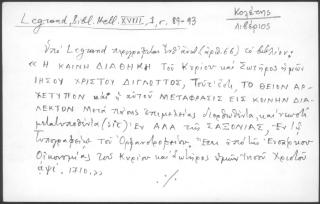 Legrand, Bibl. Hell. XVIII, 1, σ. 89-93
Κολέτης
Λιβέριος
Ὑπὸ Legrand περιγράφεται (ἀριθ. 66) τὸ βιβλίον:
« Η ΚΑΙΝΗ ΔΙΑΘΗΚΗ τοῦ Κυρίου καὶ Σωτῆρος ἡμῶν
ΙΗΣΟΥ ΧΡΙΣΤΟΥ ΔΙΓΛΩΤΤΟΣ, Τοῦτ' ἔστι, ΤΟ ΘΕΙΟΝ ΑΡ-
ΧΕΤΥΠΟΝ καὶ ἡ αὐτοῦ ΜΕΤΑΦΡΑΣΙΣ ΕΙΣ ΚΟΙΝΗΝ ΔΙΑ-
ΛΕΚΤΟΝ Μετὰ πάσης ἐπιμελείας διορθωθέντα, καὶ νεωστὶ
μετατυπωθέντα (sic) Ἐν ΑΛΑ τῆς ΣΑΞΟΝΙΑΣ, Ἐν τῇ
Τυπογραφίᾳ τοῦ Ὀρφανοτροφείου, Ἔτει ἀπὸ τῆς Ἐνσάρκου
Οἰκονομίας τοῦ Κυρίου καὶ Σωτῆρος ἡμῶν Ἰησοῦ Χριστοῦ
αψί. 1710. »
./.